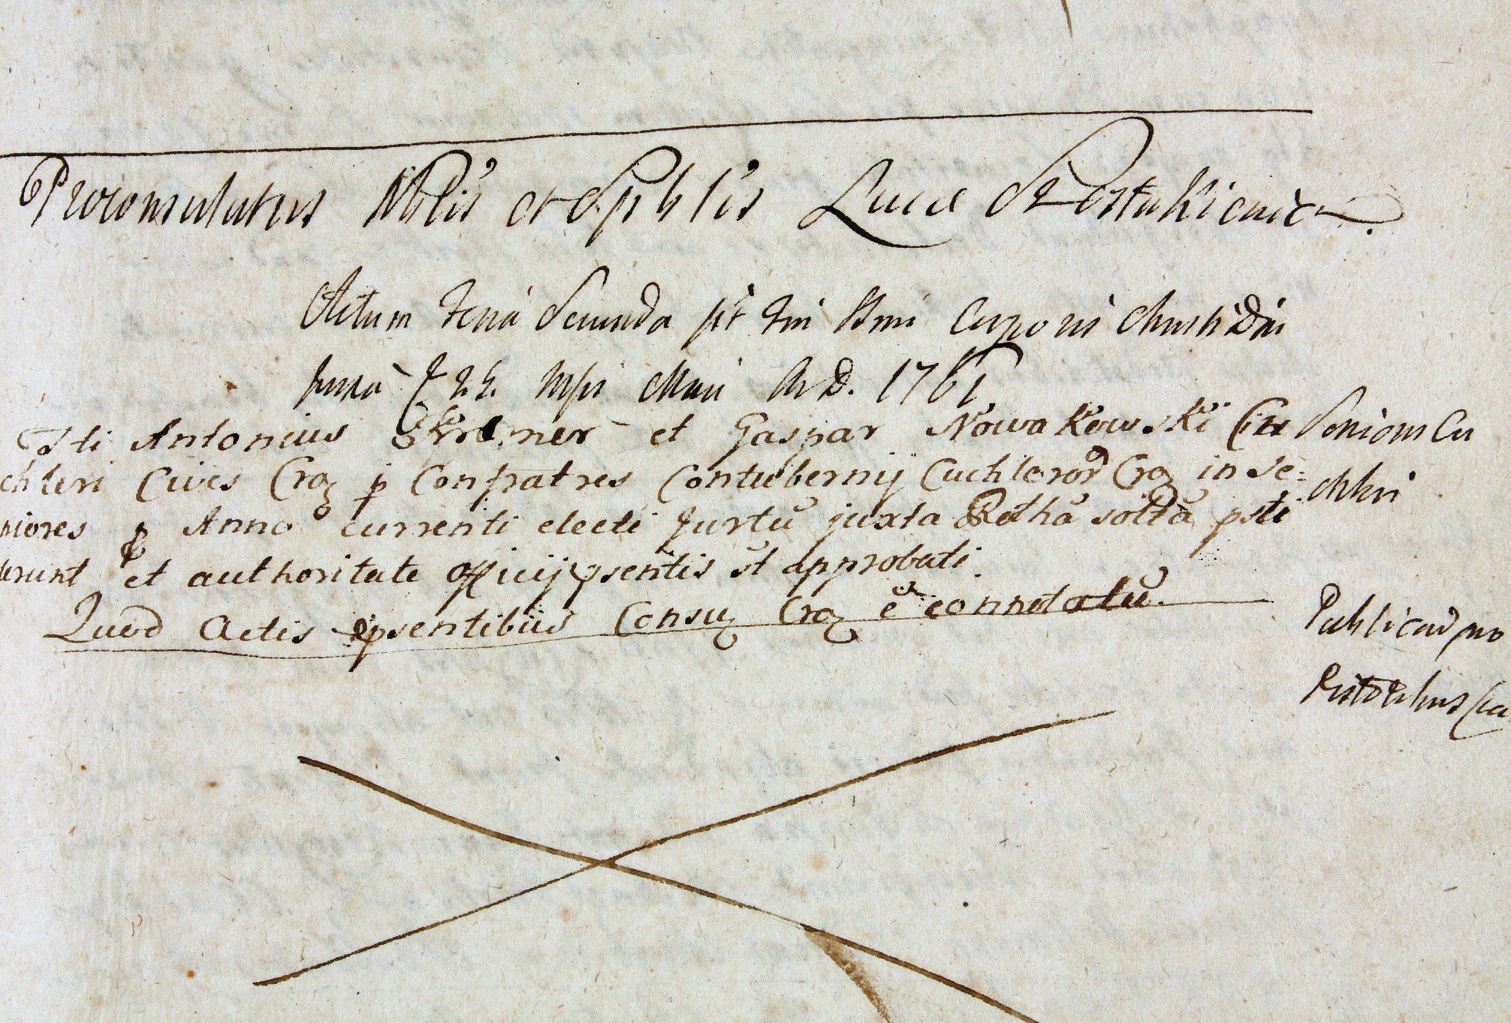 Proconsulatus Nblis et Spblis Lucæ Szostakiewicz.
Actum Feria Secunda pt Fm Ssmi Corporis Christi Dni
25. Msis Maii A. D. 1761
Isti Antonius Kremer et Gaspar Nowakowski Cu
chleri Cives Crac p Confratres Contubernij Cuchleror Crac in Se=
niores p Anno currenti electi Jurtu juxta Rothā solitā psti
terunt et authoritate officij psentis st approbati.
Quod Actis psentibus Consu Crac ē connotatū.
Seniores Cu
chleri
Publicao pro
Pistoribus